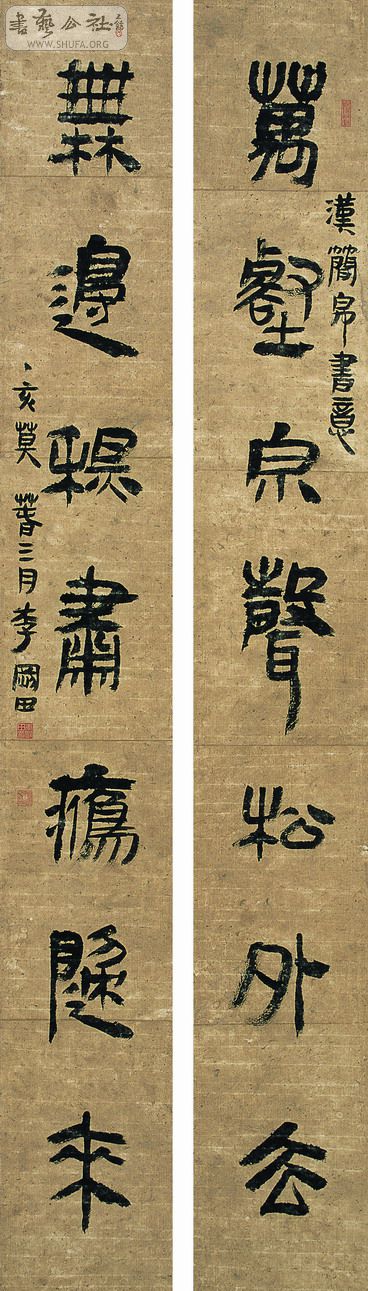 書藝公社
WWW.SHUFA.ORG
漢簡帛書意
萬壑泉聲松外去
無邊肅來
亥莫萅三月李剛田